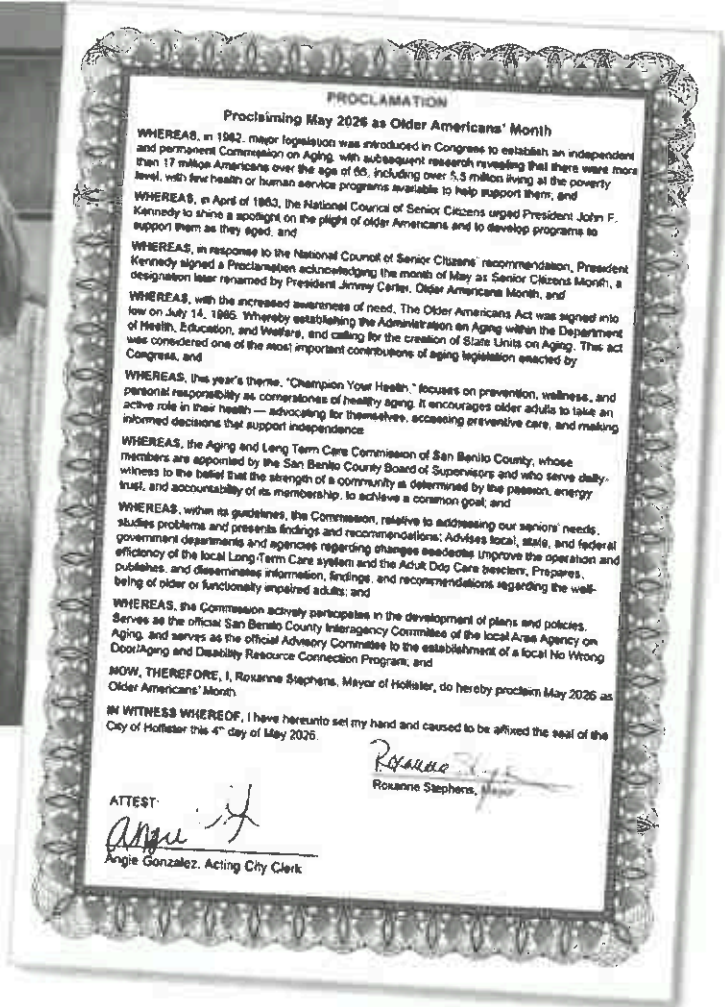 PROCLAMATION
Proclaiming May 2026 as Older Americans' Month
WHEREAS, in 1962, major legislation was introduced in Congress to establish an independent
and permanent Commission on Aging, with subsequent research revealing that there were more
than 17 million Americans over the age of 65, including over 5.5 million living at the poverty
level, with few health or human service programs available to help support them; and
WHEREAS, in April of 1963, the National Council of Senior Citizens urged President John F.
Kennedy to shine a spotlight on the plight of older Americans and to develop programs to
support them as they aged, and
WHEREAS, in response to the National Council of Senior Citizens' recommendation, President
Kennedy signed a Proclamation acknowledging the month of May as Senior Citizens Month, a
designation later renamed by President Jimmy Carter, Older Americans Month, and
WHEREAS, with the increased awareness of need, The Older Americans Act was signed into
law on July 14, 1965. Whereby establishing the Administration on Aging within the Department
of Health, Education, and Welfare, and calling for the creation of State Units on Aging. This act
was considered one of the most important contributions of aging legislation enacted by
Congress, and
WHEREAS, this year's theme, "Champion Your Health," focuses on prevention, wellness, and
personal responsibility as cornerstones of healthy aging. It encourages older adults to take an
active role in their health — advocating for themselves, accessing preventive care, and making
informed decisions that support independence
WHEREAS, the Aging and Long Term Care Commission of San Benito County, whose
members are appointed by the San Benito County Board of Supervisors and who serve daily-
witness to the belief that the strength of a community is determined by the passion, energy
trust, and accountability of its membership, to achieve a common goal; and
WHEREAS, within its guidelines, the Commission, relative to addressing our seniors' needs,
studies problems and presents findings and recommendations; Advises local, state, and federal
government departments and agencies regarding changes improve the operation and
efficiency of the local Long-Term Care system and the Adult Care Prepares,
publishes, and disseminates information, findings, and recommendations regarding the well-
being of older or functionally impaired adults; and
WHEREAS, the Commission actively participates in the development of plans and policies.
Serves as the official San Benito County Interagency Committee of the local Area Agency on
Aging, and serves as the official Advisory Committee to the establishment of a local No Wrong
Door/Aging and Disability Resource Connection Program; and
NOW, THEREFORE, I, Roxanne Stephens, Mayor of Hollister, do hereby proclaim May 2026 as
Older Americans' Month
IN WITNESS WHEREOF, I have hereunto set my hand and caused to be affixed the seal of the
City of Hollister this 4th day of May 2026.
Roxanne
Roxanne Stephens, Mayor
ATTEST:
Angie
Angie Gonzalez, Acting City Clerk